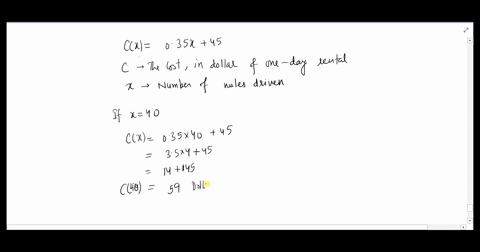 C(x) = 0.35x + 45
C → The cost, in dollar of one-day rental
x → Number of miles driven
If x = 40
C(x) = 0.35 × 40 + 45
= 3.5 × 4 + 45
= 14 + 45
C(40) = 59 Doll